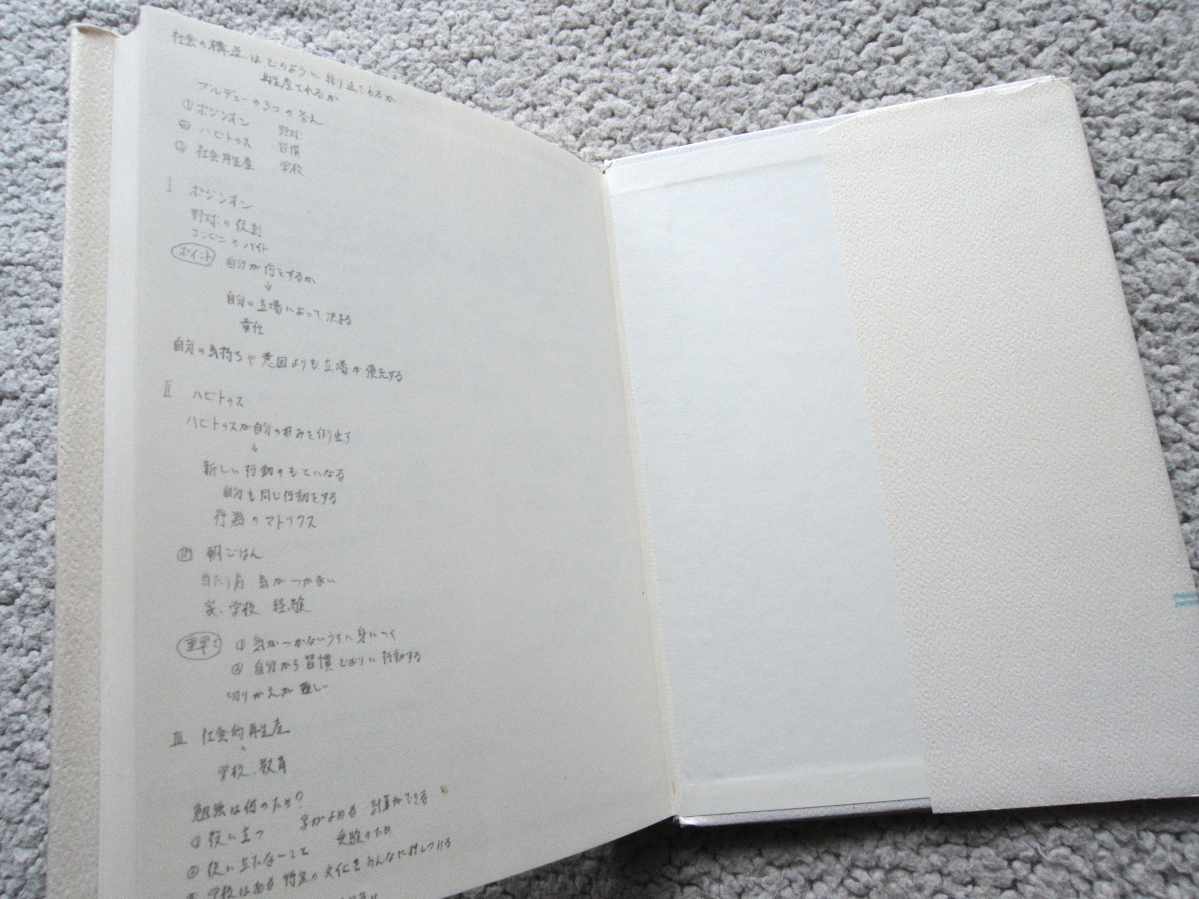 社会の構造はどのように繰り返されるか
再生産されるか
ブルデューの3つの答え
① ポジシオン 野球
② ハビトゥス 習慣
③ 社会再生産 学校
Ⅰ ポジシオン
野球の役割
コンビニのバイト
ポイント 自分が何をするか
↓
自分の立場によって決まる
責任
自分の気持ちや意図よりも立場が優先する
Ⅱ ハビトゥス
ハビトゥスが自分の好みを作り出す
↓
新しい行動のもとになる
自分も同じ行動をする
行為のマトリクス
例 朝ごはん
当たり前 気がつかない
家、学校 経験
重要 ① 気がつかないうちに身につく
② 自分から習慣どおりに行動する
切りかえが難しい
Ⅲ 社会的再生産
学校、教育
勉強は何のため?
① 役に立つ 字がよめる 計算ができる
② 役に立たないこと 受験のため
学校はある特定の文化をみんなに押しつける